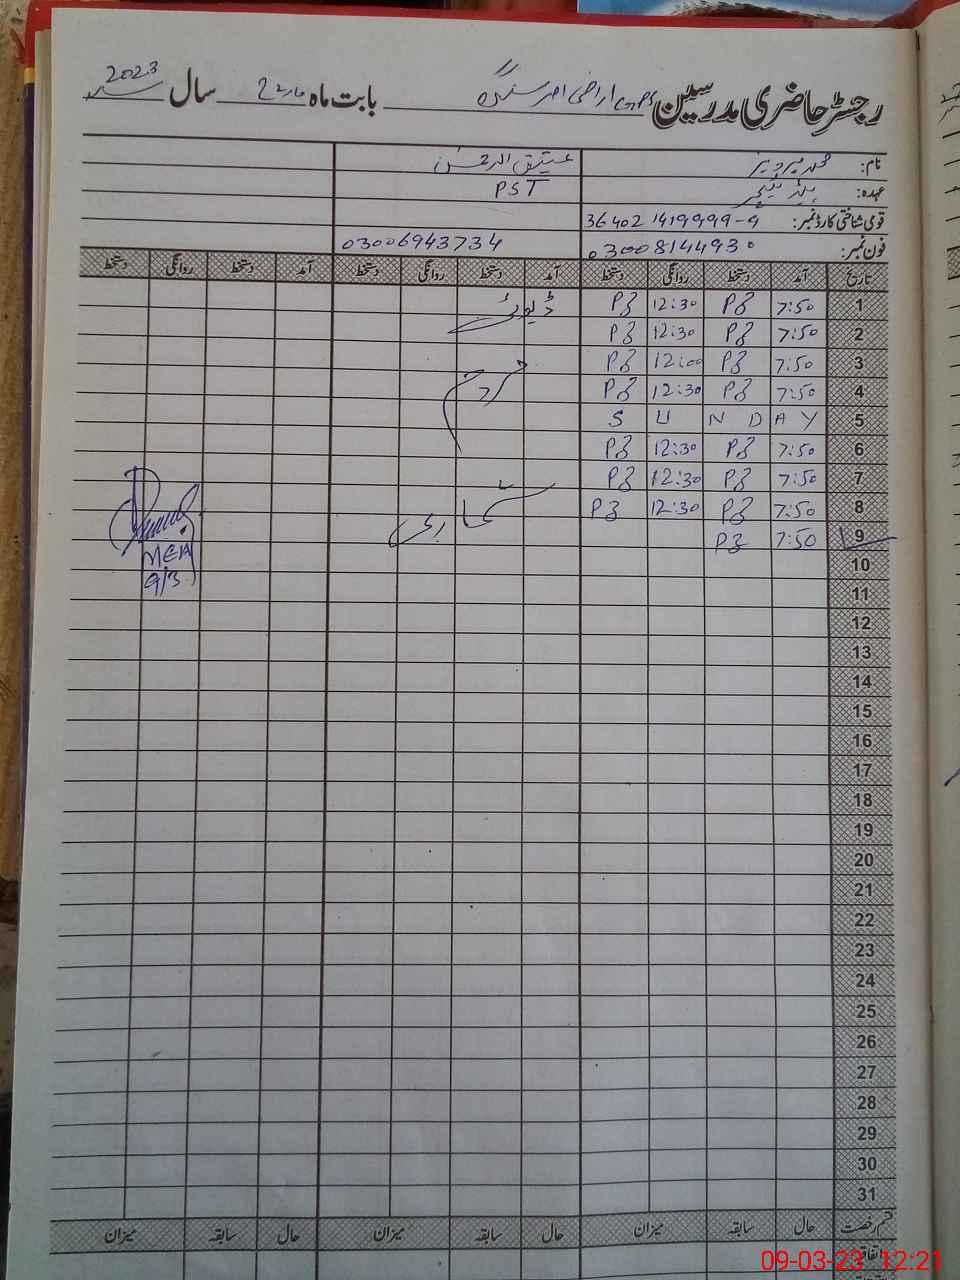 رجسٹر حاضری مدرسین GPS اراضی امر سنگھ بابت ماہ مارچ سال 2023
نام: محمد پرویز عتیق الرحمٰن
عہدہ: ہیڈ ٹیچر PST
قومی شناختی کارڈ نمبر: 36402 1419999-9
فون نمبر: 03008144930 03006943734
تاریخ آمد دستخط روانگی دستخط آمد دستخط روانگی دستخط آمد دستخط روانگی دستخط
1 7:50 12:30 ڈیوٹی
2 7:50 12:30
3 7:50 12:00 مردم
4 7:50 12:30
5 S U N D A Y
6 7:50 12:30
7 7:50 12:30
8 7:50 12:30 شماری
9 7:50
MEA
9/3
10
11
12
13
14
15
16
17
18
19
20
21
22
23
24
25
26
27
28
29
30
31
قسم رخصت حال سابقہ میزان حال سابقہ میزان حال سابقہ میزان
اتفاقیہ
09-03-23 12:21